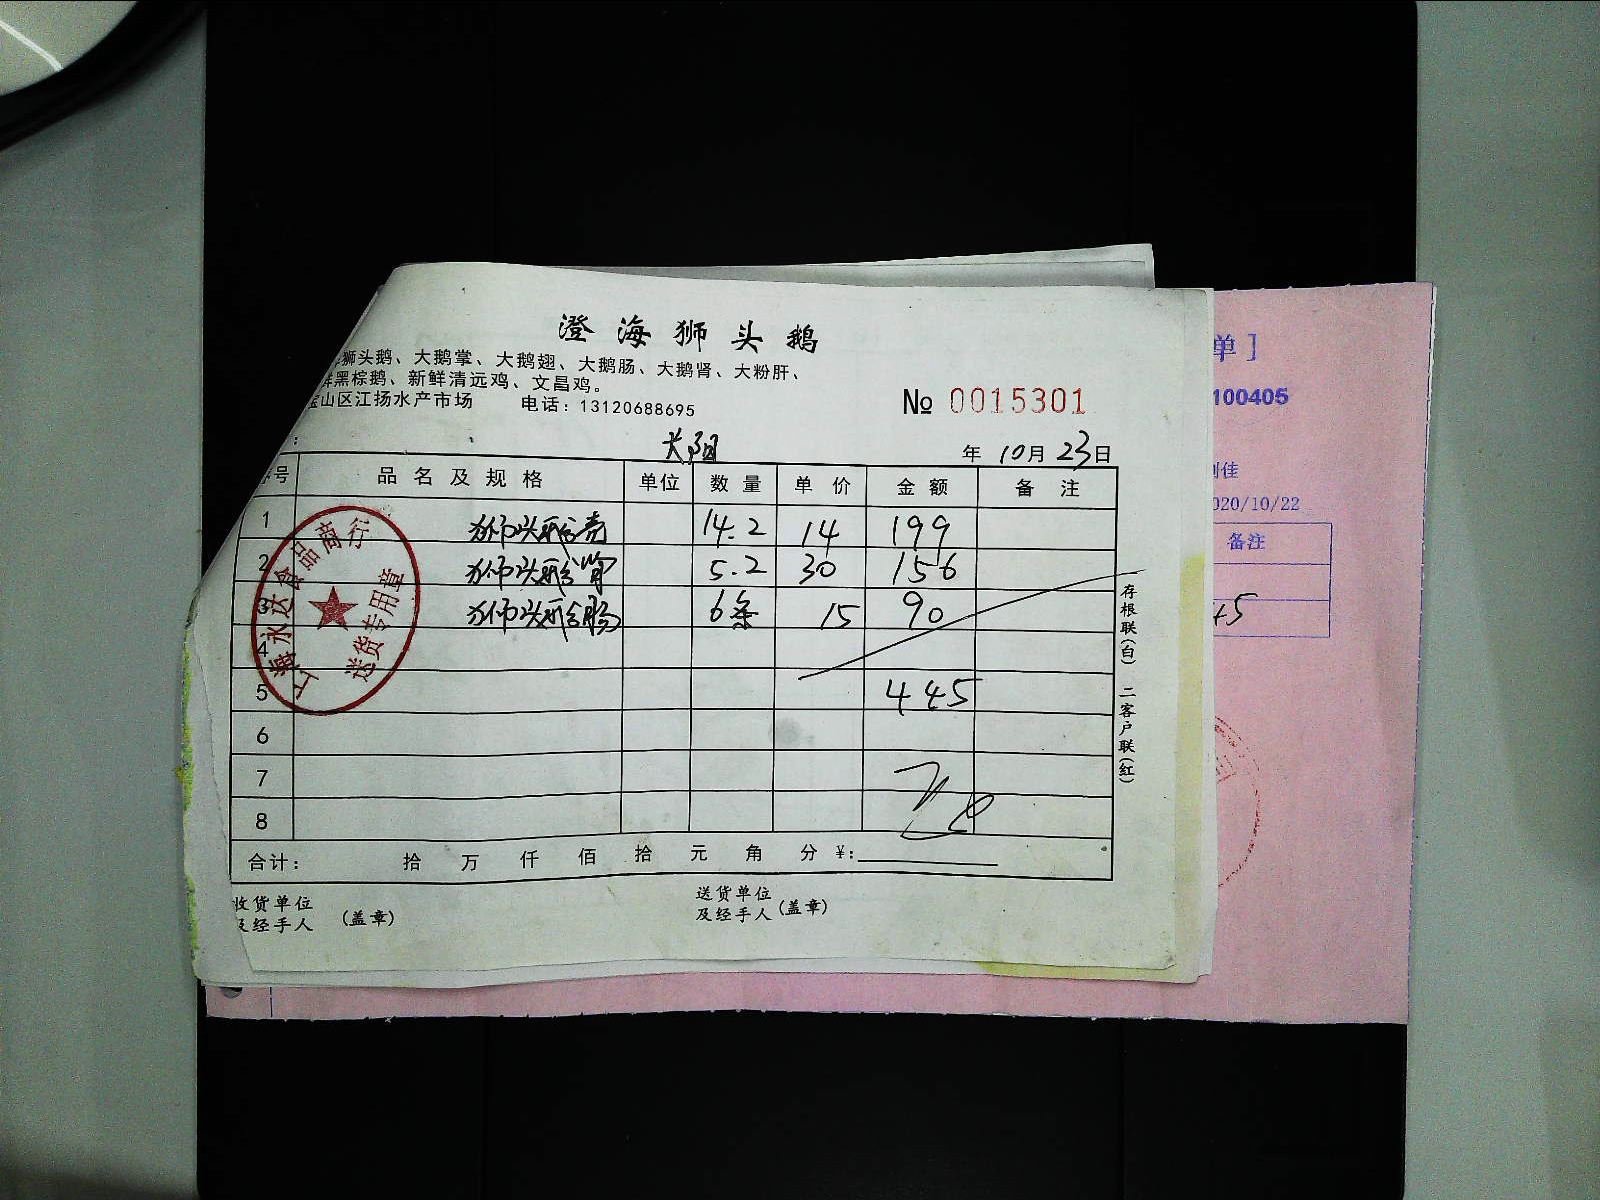 澄海狮头鹅
狮头鹅、大鹅掌、大鹅翅、大鹅肠、大鹅肾、大粉肝、
鲜黑棕鹅、新鲜清远鸡、文昌鸡。
宝山区江扬水产市场 电话：13120688695
№ 0015301
年 10月 23日
序号 品名及规格 单位 数量 单价 金额 备注
1 狮头鹅壳 14.2 14 199
2 狮头鹅肾 5.2 30 156
3 狮头鹅肠 6条 15 90
4
5 445
6
7
8
合计： 拾 万 仟 佰 拾 元 角 分 ¥：
收货单位
及经手人 (盖章)
送货单位
及经手人 (盖章)
存根联(白) 二客户联(红)
上海永达食品商行
送货专用章
单]
100405
020/10/22
备注
45